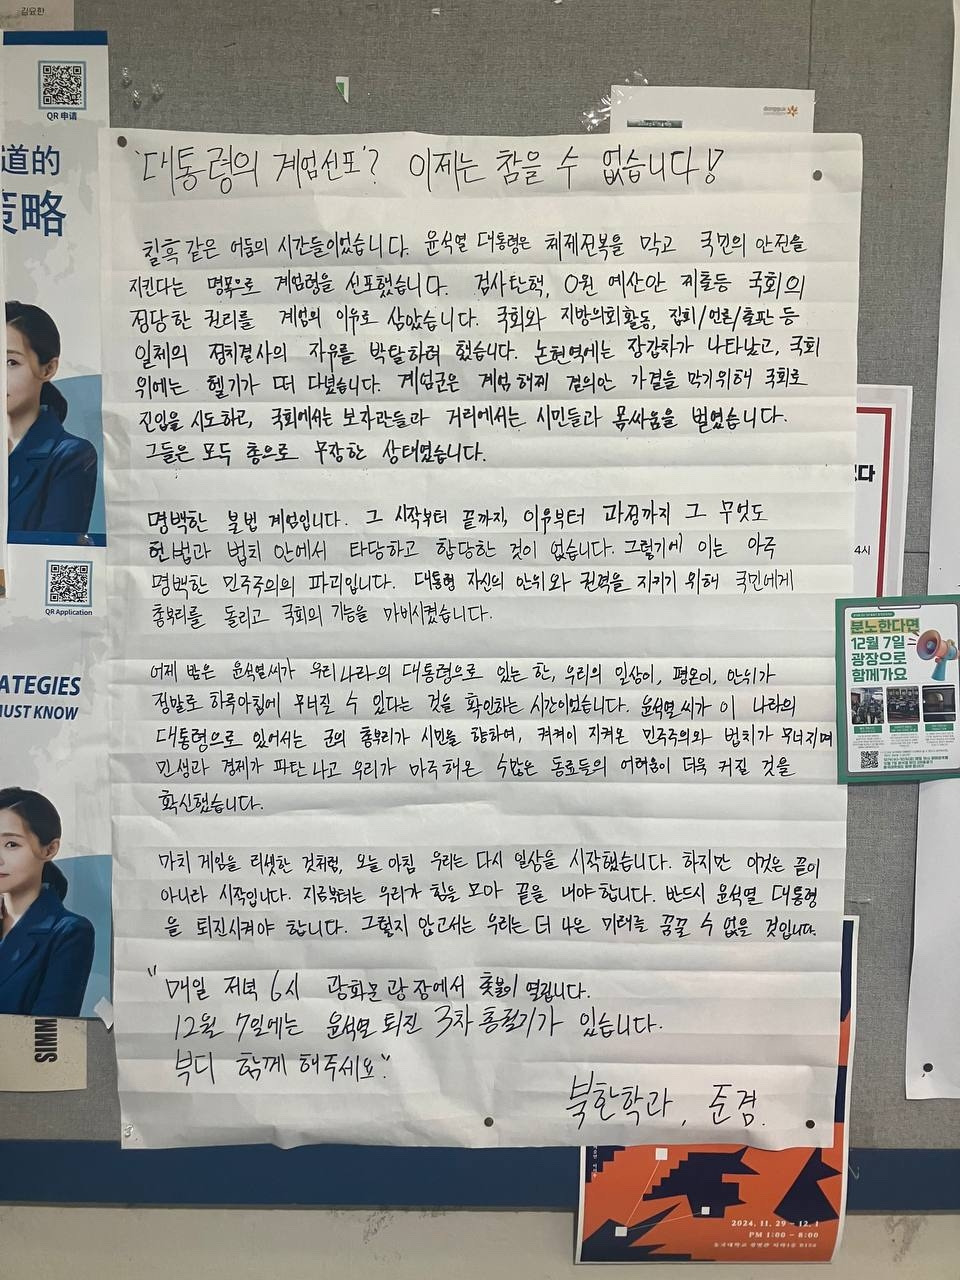 김요한
QR 申请
道的
策略
QR Application
ATEGIES
MUST KNOW
SIMM
dongguk
'대통령의 계엄선포'? 이제는 참을 수 없습니다!
칠흑 같은 어둠의 시간들이었습니다. 윤석열 대통령은 체제전복을 막고 국민의 안전을
지킨다는 명목으로 계엄령을 선포했습니다. 검사탄핵, 0원 예산안 제출등 국회의
정당한 권리를 계엄의 이유로 삼았습니다. 국회와 지방의회활동, 집회/언론/출판 등
일체의 정치결사의 자유를 박탈하려 했습니다. 논현역에는 장갑차가 나타났고, 국회
위에는 헬기가 떠 다녔습니다. 계엄군은 계엄 해제 결의안 가결을 막기위해 국회로
진입을 시도하고, 국회에서는 보좌관들과 거리에서는 시민들과 몸싸움을 벌였습니다.
그들은 모두 총으로 무장한 상태였습니다.
명백한 불법 계엄입니다. 그 시작부터 끝까지, 이유부터 과정까지 그 무엇도
헌법과 법치 안에서 타당하고 합당한 것이 없습니다. 그렇기에 이는 아주
명백한 민주주의의 파괴입니다. 대통령 자신의 안위와 권력을 지키기 위해 국민에게
총부리를 돌리고 국회의 기능을 마비시켰습니다.
어제 밤은 윤석열씨가 우리나라의 대통령으로 있는 한, 우리의 일상이, 평온이, 안위가
정말로 하루아침에 무너질 수 있다는 것을 확인하는 시간이었습니다. 윤석열씨가 이 나라의
대통령으로 있어서는 군의 총부리가 시민을 향하며, 켜켜이 지켜온 민주주의와 법치가 무너지며
민생과 경제가 파탄나고 우리가 마주해온 수많은 동료들의 어려움이 더욱 커질 것을
확신했습니다.
마치 게임을 리셋한 것처럼, 오늘 아침 우리는 다시 일상을 시작했습니다. 하지만 이것은 끝이
아니라 시작입니다. 지금부터는 우리가 힘을 모아 끝을 내야합니다. 반드시 윤석열 대통령
을 퇴진시켜야 합니다. 그렇지 않고서는 우리는 더 나은 미래를 꿈꿀 수 없을 것입니다.
"매일 저녁 6시 광화문 광장에서 촛불이 열립니다.
12월 7일에는 윤석열 퇴진 3차 총궐기가 있습니다.
부디 함께 해주세요."
북한학과, 준겸.
4시
분노한다면
12월 7일
광장으로
함께가요
2024. 11. 29 – 12. 1
PM 1:00 – 8:00